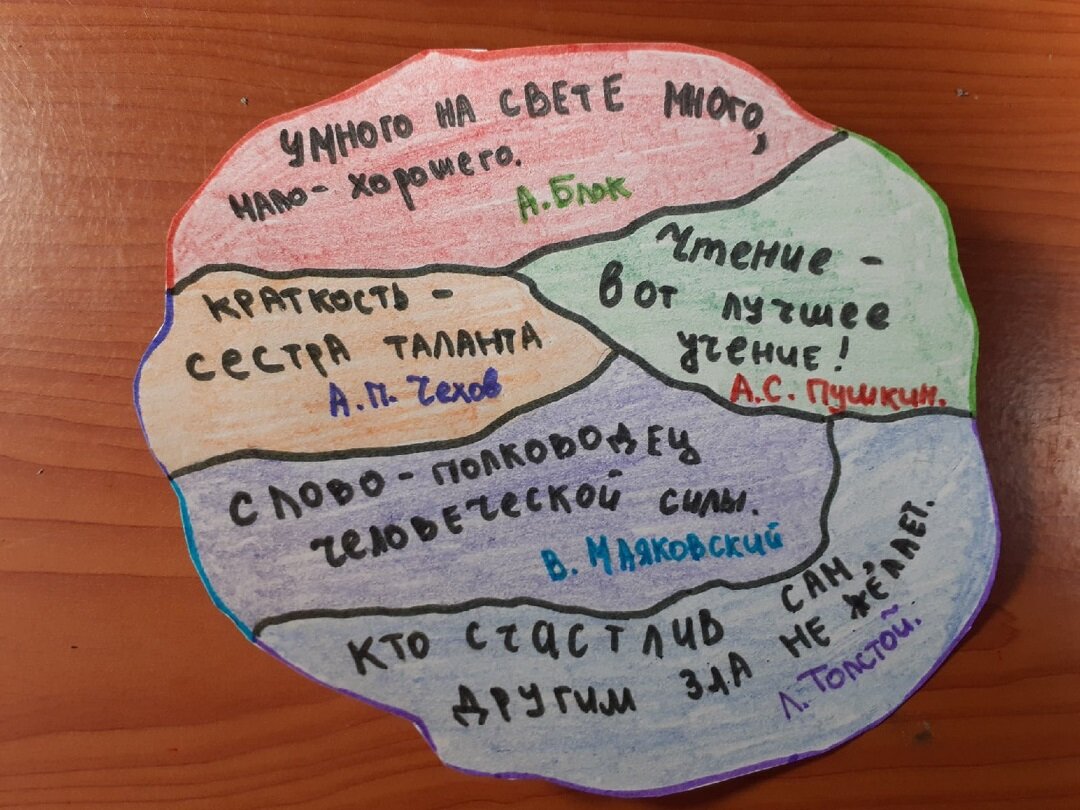 УМНОГО НА СВЕТЕ МНОГО,
МАЛО - хорошего.
А. Блок
Чтение -
вот лучшее
учение!
А.С. Пушкин.
КРАТКОСТЬ -
СЕСТРА ТАЛАНТА
А.П. Чехов
СЛОВО - ПОЛКОВОДЕЦ
человеческой силы.
В. Маяковский
КТО СЧАСТЛИВ САМ,
ДРУГИМ ЗЛА НЕ ЖЕЛАЕТ.
Л. Толстой.